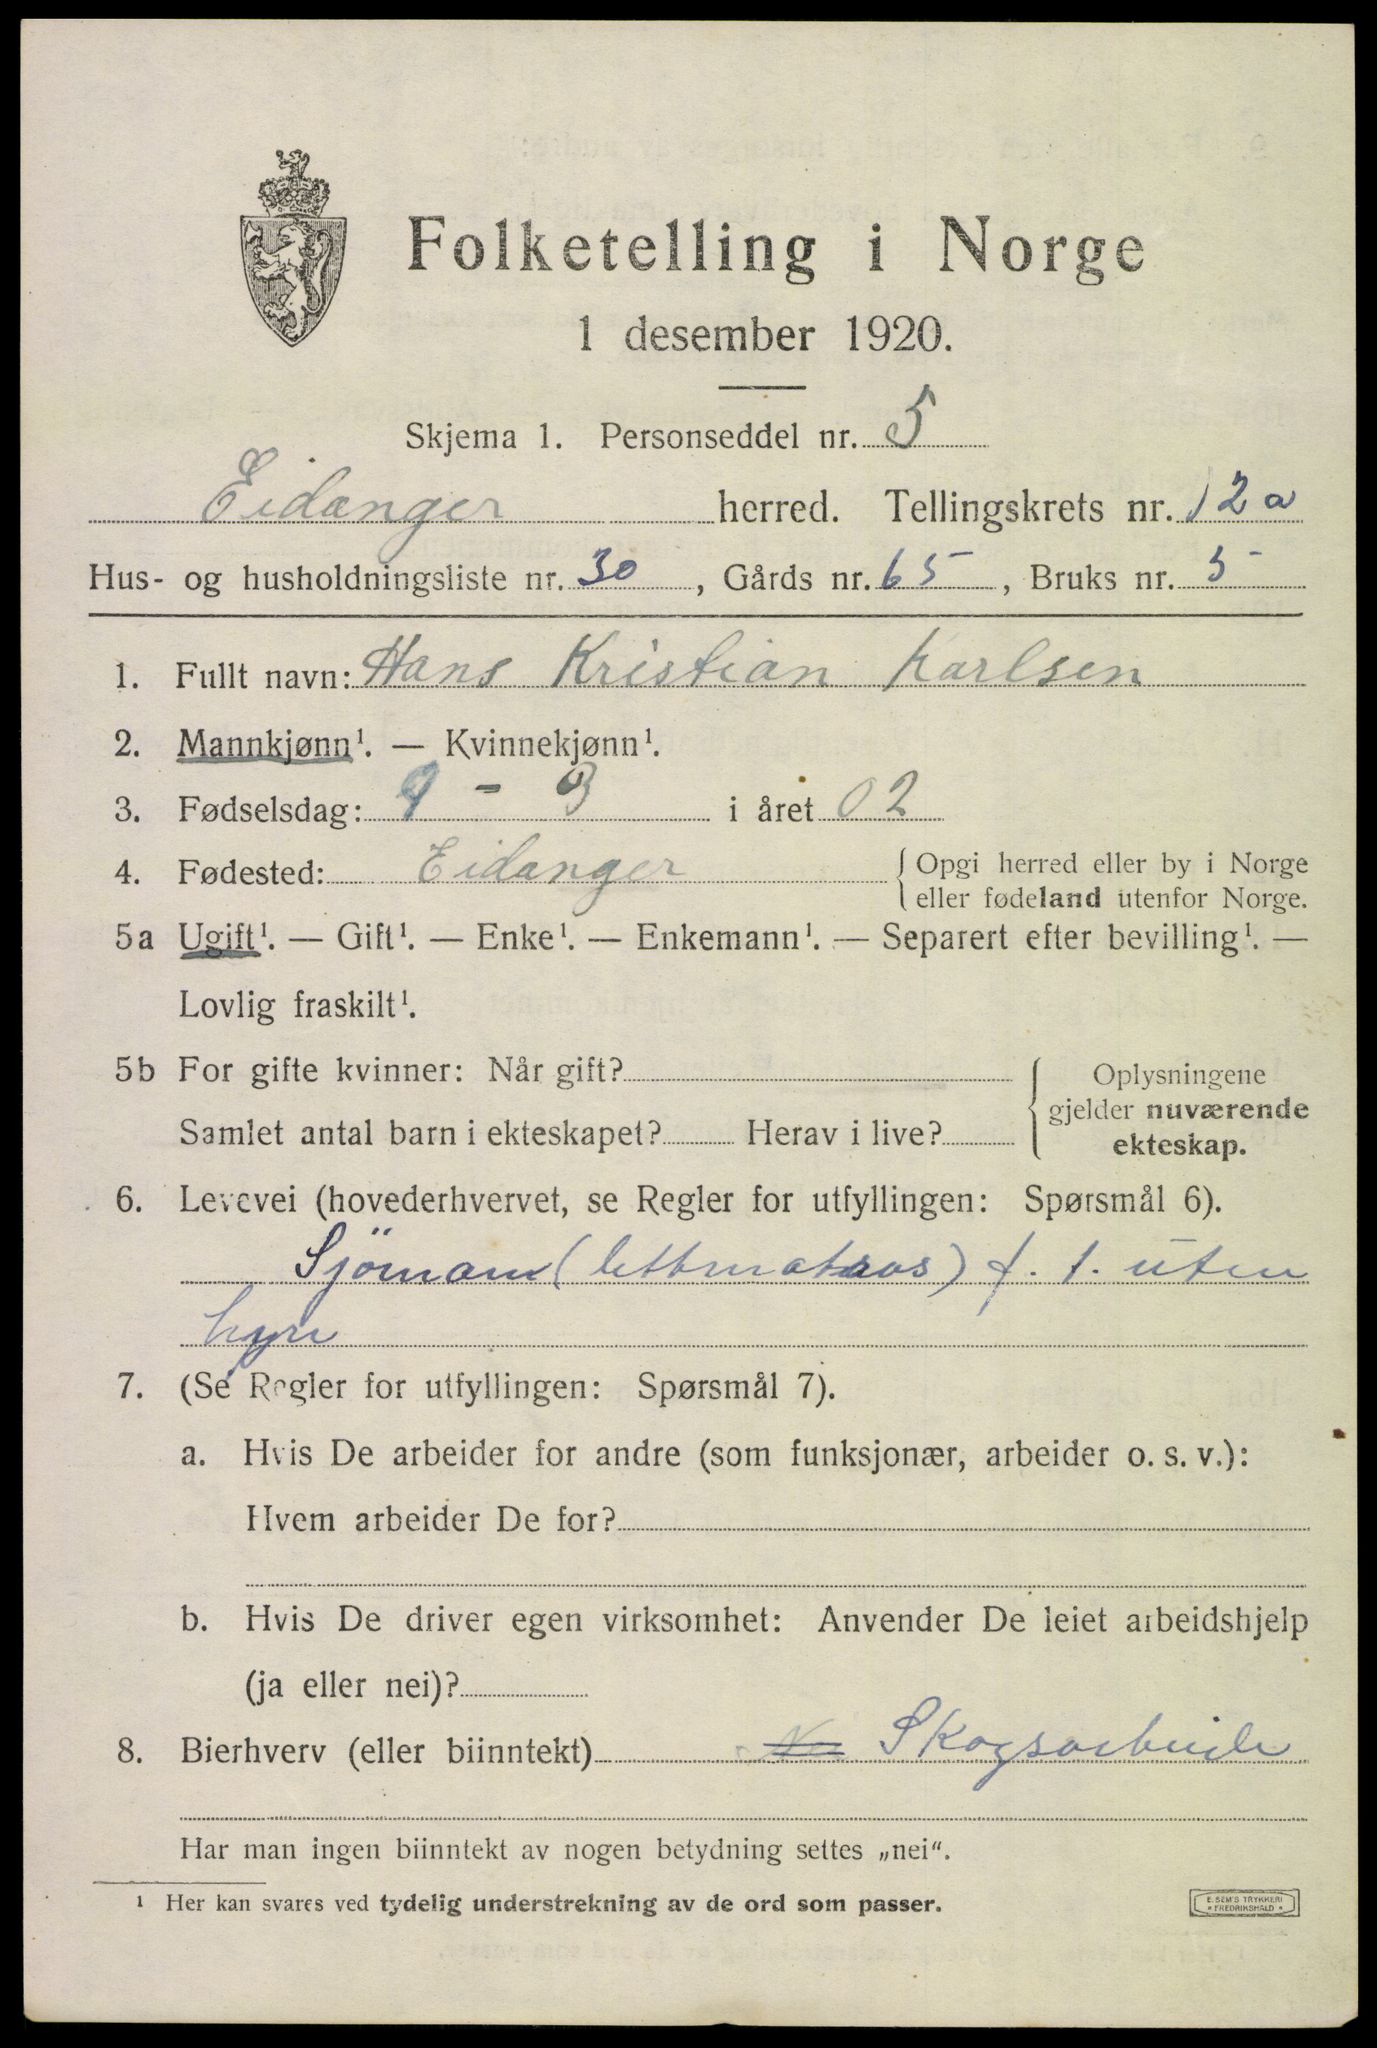 Folketelling i Norge
1 desember 1920.
Skjema 1. Personseddel nr. 5
Eidanger herred. Tellingskrets nr. 12a
Hus- og husholdningsliste nr. 30, Gårds nr. 65, Bruks nr. 5
1. Fullt navn: Hans Kristian Karlsen
2. Mannkjønn¹. — Kvinnekjønn¹.
3. Fødselsdag: 9 - 3 i året 02
4. Fødested: Eidanger { Opgi herred eller by i Norge
eller fødeland utenfor Norge.
5a Ugift¹. — Gift¹. — Enke¹. — Enkemann¹. — Separert efter bevilling¹. —
Lovlig fraskilt¹.
5b For gifte kvinner: Når gift?
Samlet antal barn i ekteskapet? Herav i live?
Oplysningene
gjelder nuværende
ekteskap.
6. Levevei (hovederhvervet, se Regler for utfyllingen: Spørsmål 6).
Sjömann (lettmatros) f. t. uten
hyre
7. (Se Regler for utfyllingen: Spørsmål 7).
a. Hvis De arbeider for andre (som funksjonær, arbeider o. s. v.):
Hvem arbeider De for?
b. Hvis De driver egen virksomhet: Anvender De leiet arbeidshjelp
(ja eller nei)?
8. Bierhverv (eller biinntekt) Skogsarbeide
Har man ingen biinntekt av nogen betydning settes „nei“.
¹ Her kan svares ved tydelig understrekning av de ord som passer.
E. SEM'S TRYKKERI
* FREDRIKSHALD *